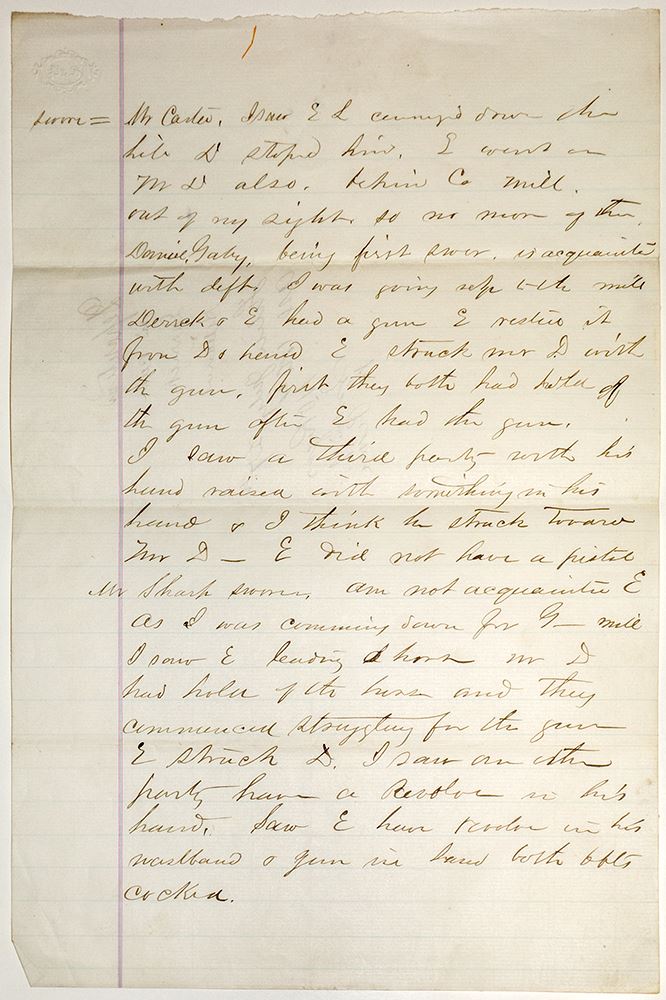 sworn = Mr Carter, I saw E & comming down the
hill D stoped him. E went on
Mr D also. behin Co mill.
out of my sight. so no more of them
Daniel Gaby, being first swor. is acquainted
with deft. I was going up to the mill
Derrick & E had a gun E restue it
from Ds hand E struck mr D with
th gun, first they both had hold of
th gun after E had the gun.
I saw a third party with his
hand raised with something in his
hand & I think he struck toward
Mr D — E did not have a pistol
Mr Sharp sworn, am not acquainted E
As I was comming down for G— mill
I saw E leading horse mr D
had hold of the horse and they
commenced struggling for the gun
E struck D. I saw an other
party have a Revolve in his
hand. Saw E have revolve in his
wastband & gun in hand both
cocked.